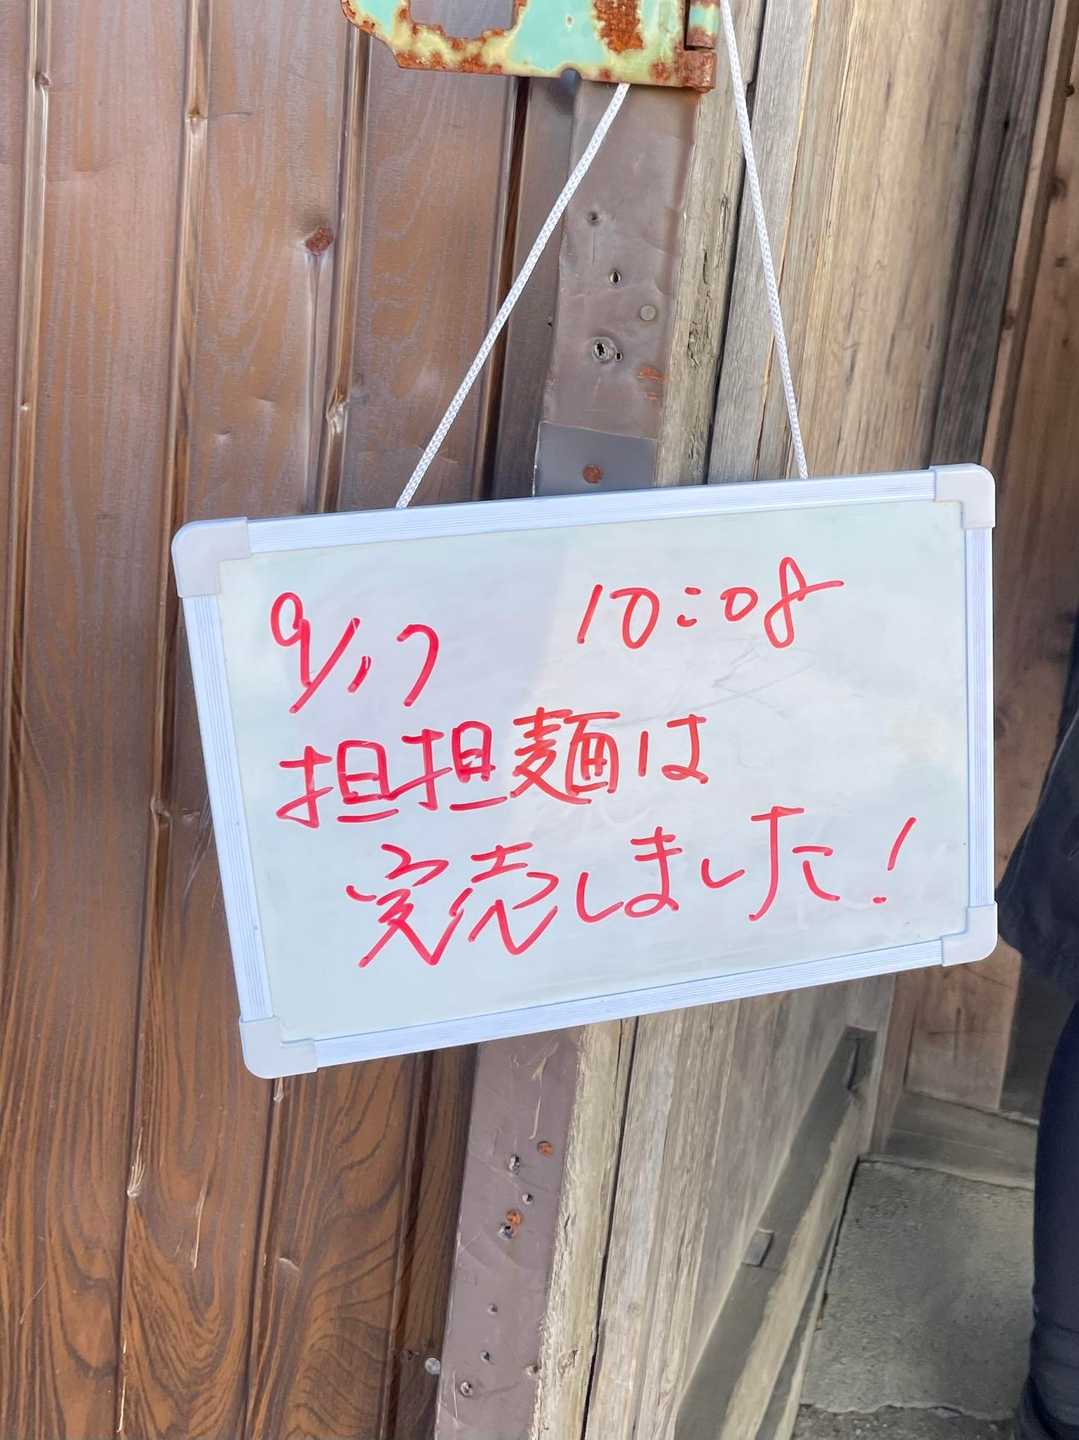 9/17 10:08
担担麺は
完売しました!